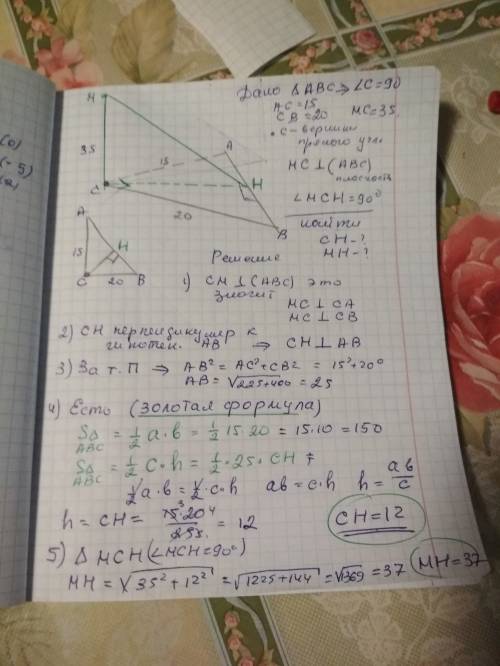 Дано △ABC ⇒ ∠C=90
AC=15
CB=20
MC=35
• C - вершина прямого угла
MC⊥(ABC)
плоскость
∠MCH=90°
найти
CH-?
MH-?
M
35
C
15
A
H
20
B
A
15
H
C
20
B
Решение
1) CM⊥(ABC) это
значит
MC⊥CA
MC⊥CB
2) CH перпендикуляр к
гипотен. AB ⇒ CH⊥AB
3) За т. П ⇒ AB²=AC²+CB² = 15²+20²
AB=√225+400 = 25
4) Есть (золотая формула)
S△ABC = 1/2 a·b = 1/2 15·20 = 15·10 = 150
S△ABC = 1/2 c·h = 1/2·25·CH
1/2 a·b = 1/2·c·h ab=c·h h= ab/c
h=CH= 15·20/25 = 12
CH=12
5) △ MCH (∠MCH=90°)
MH = √35²+12² = √1225+144 = √1369 = 37
MH=37
(0)
(-5)